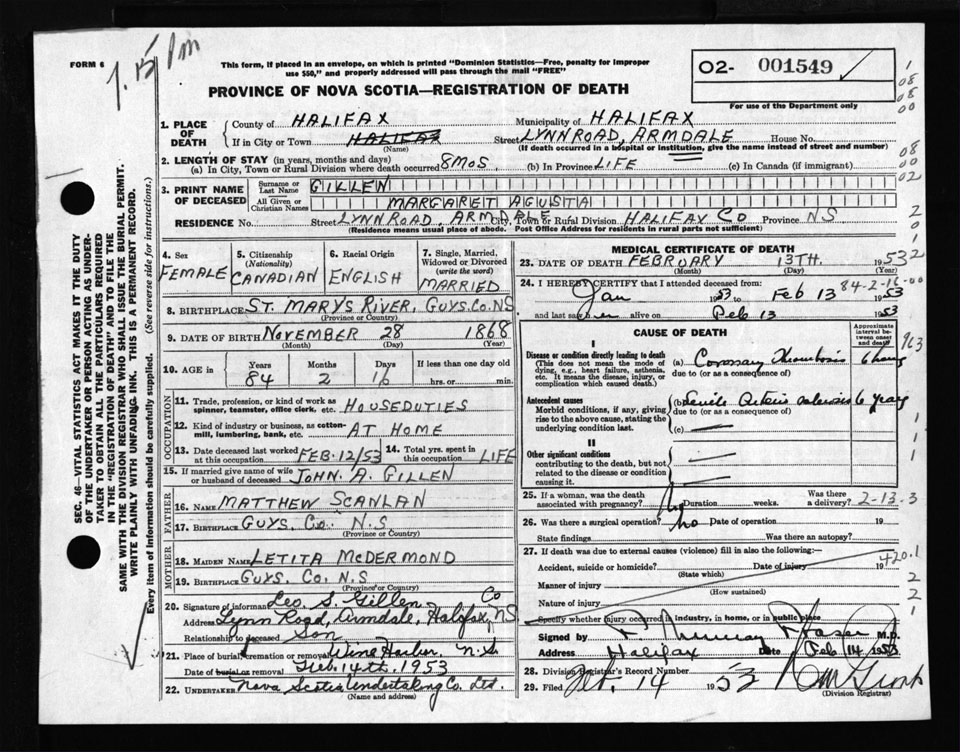 7.15 pm
FORM 6
This form, if placed in an envelope, on which is printed "Dominion Statistics—Free, penalty for improper
use $50," and properly addressed will pass through the mail "FREE"
PROVINCE OF NOVA SCOTIA—REGISTRATION OF DEATH
02- 001549
For use of the Department only
1. PLACE OF DEATH
County of HALIFAX Municipality of HALIFAX
If in City or Town HALIFAX (Name) Street LYNN ROAD, ARMDALE House No.
(If death occurred in a hospital or institution, give the name instead of street and number)
2. LENGTH OF STAY (in years, months and days)
(a) In City, Town or Rural Division where death occurred 8 MOS (b) In Province LIFE (c) In Canada (if immigrant)
3. PRINT NAME OF DECEASED
Surname or Last Name GILLEN
All Given or Christian Names MARGARET AGUSTA
RESIDENCE No. Street LYNN ROAD, ARMDALE City, Town or Rural Division HALIFAX CO Province NS
(Residence means usual place of abode. Post Office Address for residents in rural parts not sufficient)
4. Sex FEMALE
5. Citizenship (Nationality) CANADIAN
6. Racial Origin ENGLISH
7. Single, Married, Widowed or Divorced (write the word) MARRIED
8. BIRTHPLACE ST. MARYS RIVER, GUYS. CO. NS
(Province or Country)
9. DATE OF BIRTH NOVEMBER 28 1868
(Month) (Day) (Year)
10. AGE in Years 84 Months 2 Days 16 If less than one day hrs. or min.
OCCUPATION
11. Trade, profession, or kind of work as spinner, teamster, office clerk, etc. HOUSEDUTIES
12. Kind of industry or business, as cotton-mill, lumbering, bank, etc. AT HOME
13. Date deceased last worked at this occupation FEB. 12/53 14. Total yrs. spent in this occupation LIFE
15. If married give name of wife or husband of deceased JOHN. A GILLEN
FATHER
16. Name MATTHEW SCANLAN
17. Birthplace GUYS. CO. N.S.
(Province or Country)
MOTHER
18. Maiden Name LETITA McDERMOND
19. Birthplace GUYS. CO. N.S
(Province or Country)
20. Signature of informant Leo S. Gillen
Address Lynn Road, Armdale, Halifax, Co NS
Relationship to deceased Son
21. Place of burial, cremation or removal Wine Harbor. N.S.
Date of burial or removal Feb. 14th. 1953
22. Undertaker Nova Scotia Undertaking Co. Ltd.
(Name and address)
MEDICAL CERTIFICATE OF DEATH
23. DATE OF DEATH FEBRUARY 13TH. 1953
(Month) (Day) (Year)
84-2-16-00
24. I HEREBY CERTIFY that I attended deceased from:
Jan 1953 to Feb 13 1953
and last saw her alive on Feb 13 1953
CAUSE OF DEATH
Approximate interval between onset and death
I
Disease or condition directly leading to death
(This does not mean the mode of dying, e.g., heart failure, asthenia, etc. It means the disease, injury, or complication which caused death.)
(a) Coronary Thrombosis 6 hours
due to (or as a consequence of)
Antecedent causes
Morbid conditions, if any, giving rise to the above cause, stating the underlying condition last.
(b) Senile Arterio sclerosis 6 years
due to (or as a consequence of)
(c)
II
Other significant conditions
contributing to the death, but not related to the disease or condition causing it.
25. If a woman, was the death associated with pregnancy? No Duration weeks. Was there a delivery? 2-13-3
26. Was there a surgical operation? no Date of operation 19
State findings Was there an autopsy?
27. If death was due to external causes (violence) fill in also the following:—
420.1
Accident, suicide or homicide? (State which) Date of injury 19
Manner of injury (How sustained)
Nature of injury
Specify whether injury occurred in industry, in home, or in public place
Signed by Murray Fraser M.D.
Address Halifax Date Feb 14 1953
28. Division Registrar's Record Number
29. Filed Feb. 14 1953
(Division Registrar)
SEC. 46—VITAL STATISTICS ACT MAKES IT THE DUTY
OF THE UNDERTAKER OR PERSON ACTING AS UNDER-
TAKER TO OBTAIN ALL THE PARTICULARS REQUIRED
IN THE "REGISTRATION OF DEATH" AND TO FILE THE
SAME WITH THE DIVISION REGISTRAR WHO SHALL ISSUE THE BURIAL PERMIT.
WRITE PLAINLY WITH UNFADING INK. THIS IS A PERMANENT RECORD.
Every item of information should be carefully supplied. (See reverse side for instructions.)